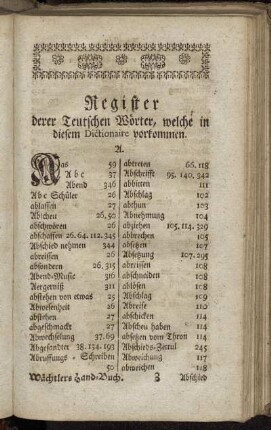 Register
derer Teutschen Wörter, welche in
diesem Dictionaire vorkommen.
A.
Aas 59
Abc 37
Abend 346
Abc Schüler 26
ablassen 27
Abscheu 26.50
abschwören 26
abschaffen 26.64.112.345
Abschied nehmen 344
abreissen 26
absondern 26.315
Abend-Music 316
Aergerniß 311
abstehen von etwas 25
Abwesenheit 26
abstehen 27
abgeschmackt 27
Abwechselung 37.69
Abgesandter 38.154.193
Abruffungs-Schreiben
50
abtreten 66.118
Abschrifft 95.140.342
abbitten 111
Abschlag 102
abthun 103
Abnehmung 104
abziehen 105.114.329
abbrechen 105
absitzen 107
Absetzung 107.295
abreissen 108
abschneiden 108
ablösen 108
Abschlag 109
Abreise 110
abschicken 114
Abscheu haben 114
absetzen vom Thron 114
Abschieds-Zettul 245
Abweichung 117
abweichen 118
Wächtlers Hand-Buch. 3 Abschied